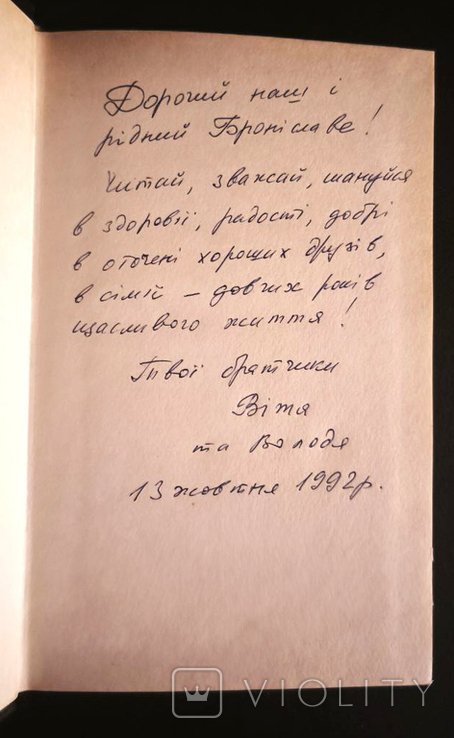 Дорогий наш і
рідний Броніславе!
Читай, зважай, шануйся
в здоровії, радості, добрі
в оточені хороших друзів,
в сімії – довгих років
щасливого життя!
Твої братчики
Вітя
та Володя
13 жовтня 1992р.
VIOLITY